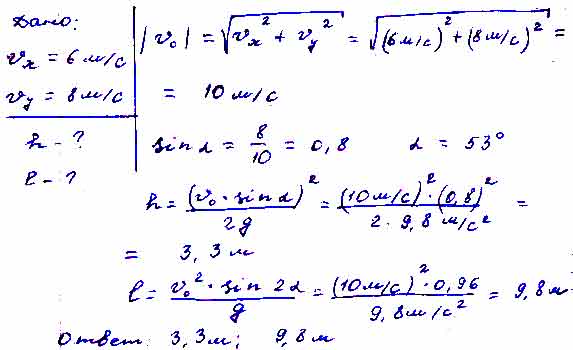 Дано:
vₓ = 6 м/с
v_y = 8 м/с
h - ?
l - ?
|v₀| = √(vₓ² + v_y²) = √((6 м/с)² + (8 м/с)²) =
= 10 м/с
sin α = 8/10 = 0,8 α = 53°
h = (v₀ · sin α)²/2g = (10 м/с)² · (0,8)²/2 · 9,8 м/с² =
= 3,3 м
l = v₀² · sin 2α/g = (10 м/с)² · 0,96/9,8 м/с² = 9,8 м
Ответ: 3,3 м; 9,8 м